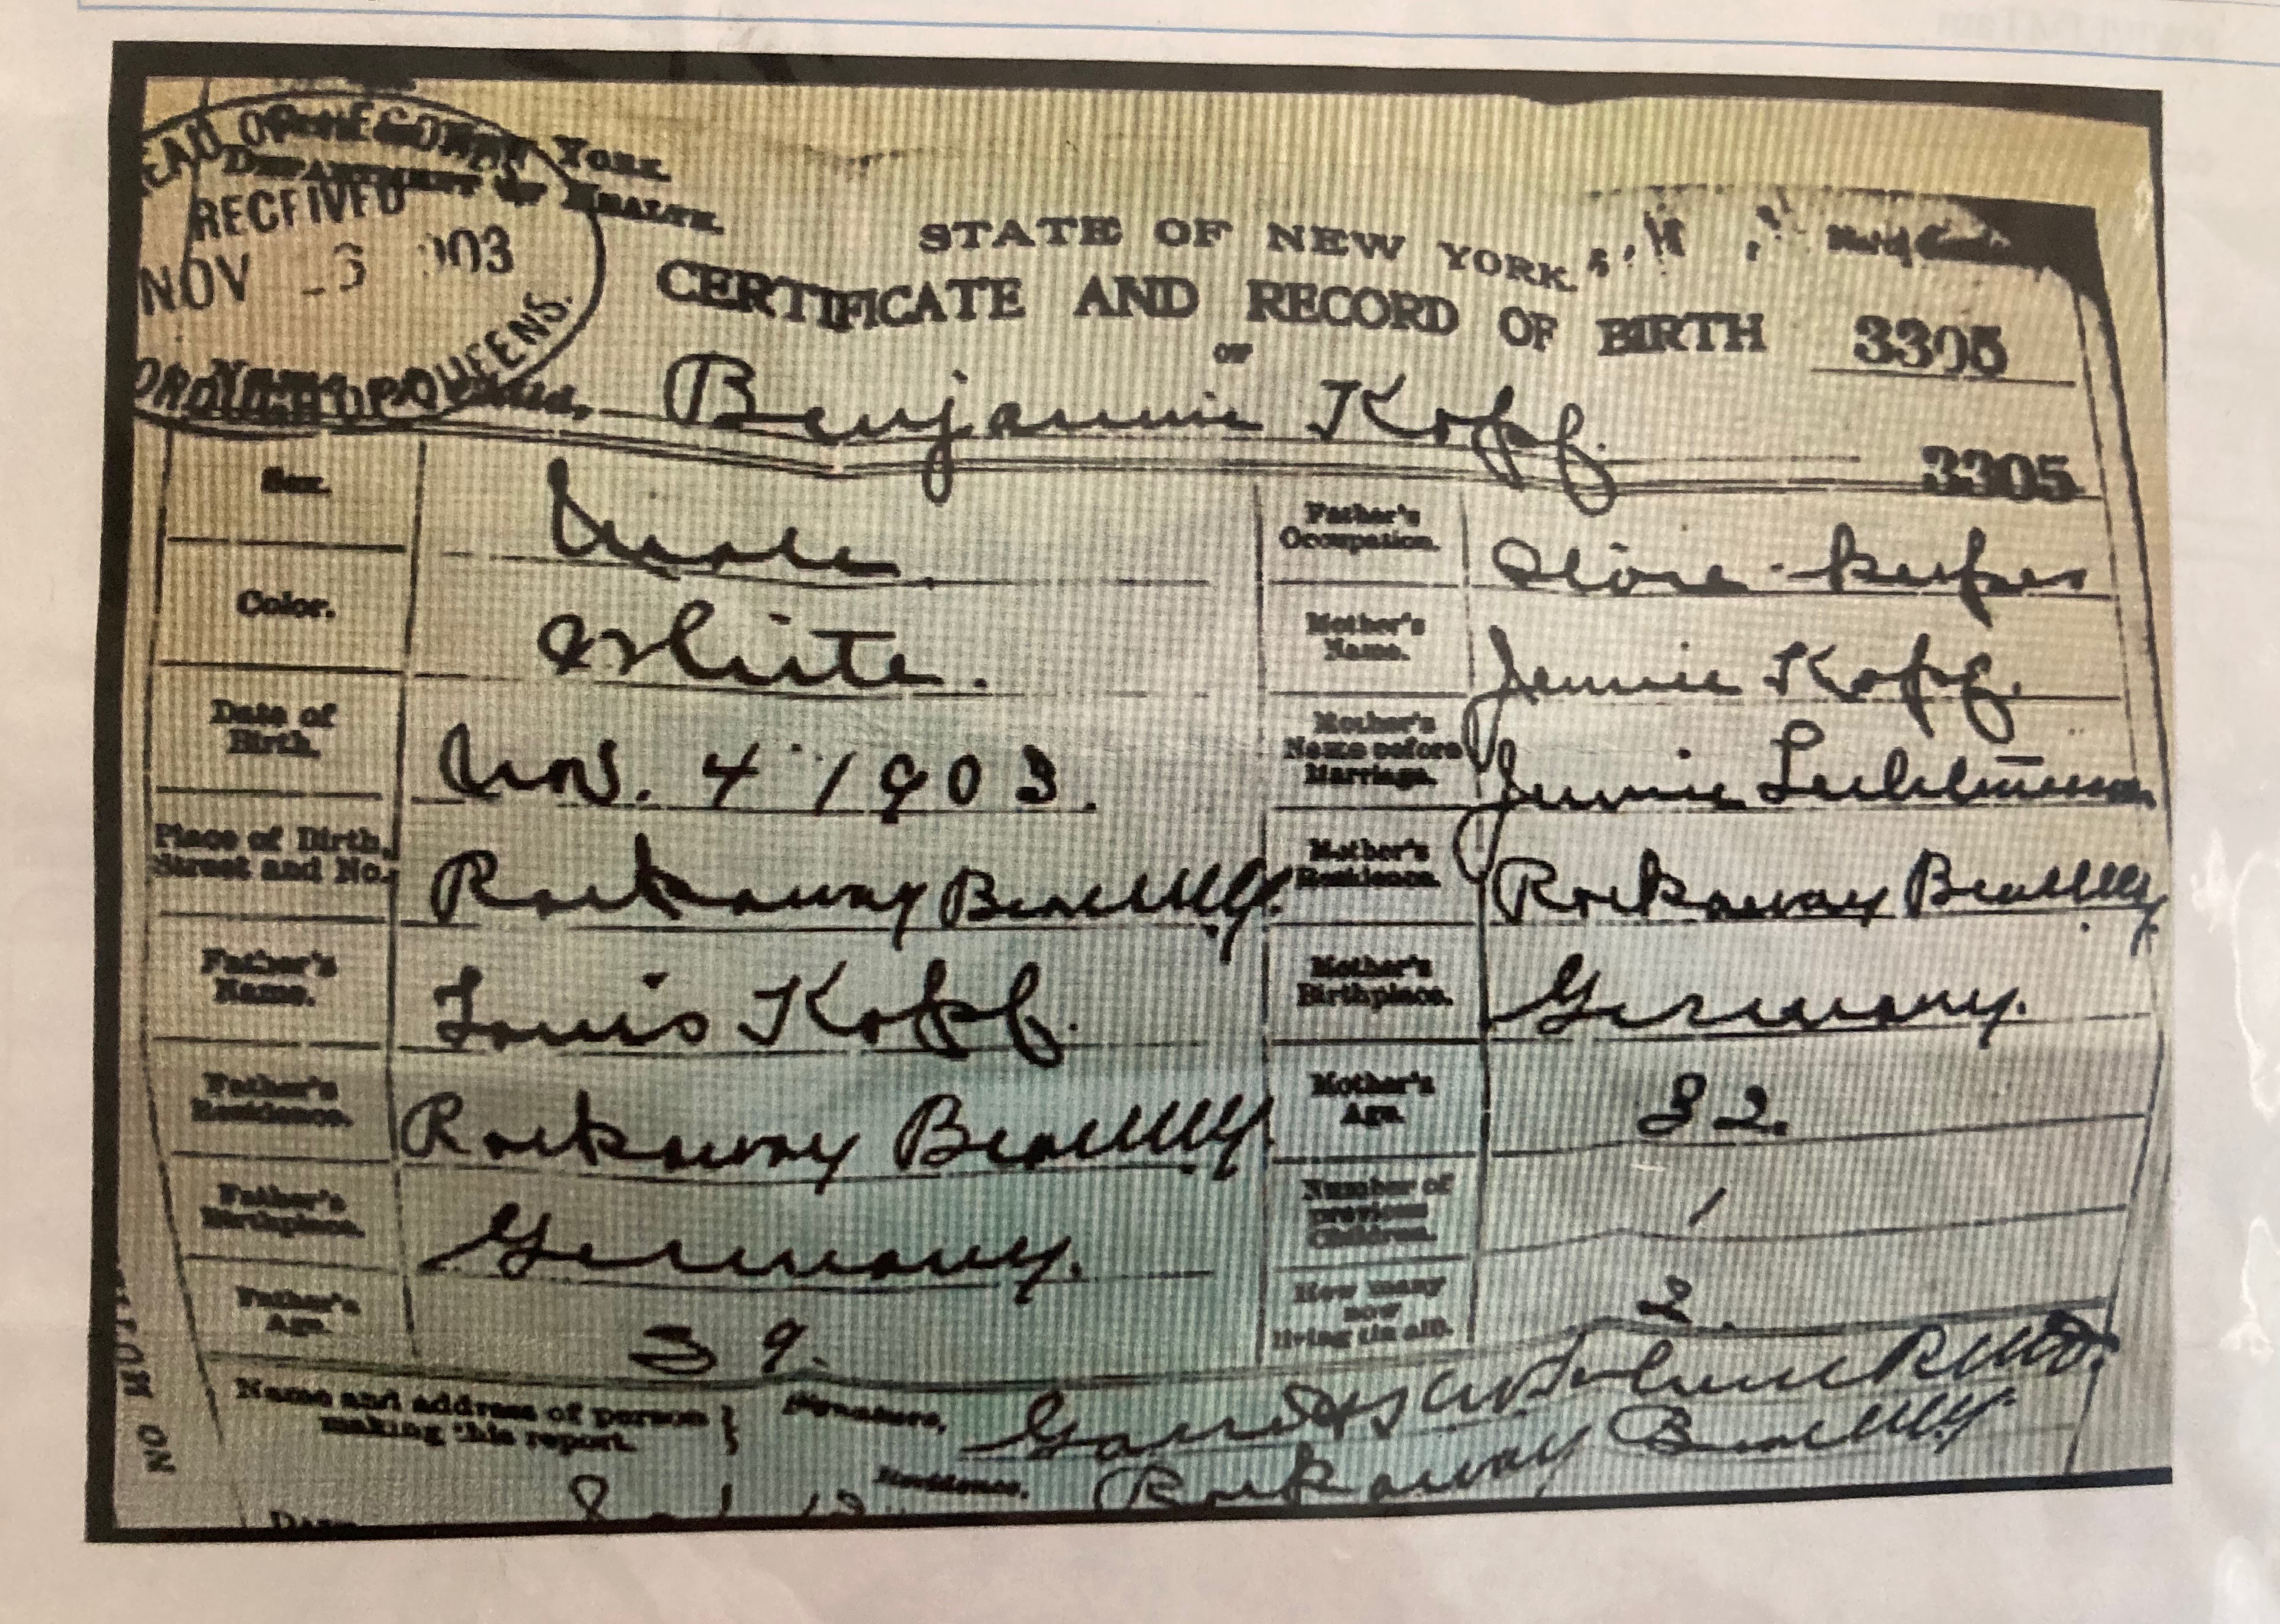 New York.
Department of Health.
RECEIVED
NOV -6 1903
QUEENS.
STATE OF NEW YORK.
CERTIFICATE AND RECORD OF BIRTH
OF
3305
Benjamin Kopf.
3305
Sex.
Male.
Father's Occupation.
Store-keeper
Color.
White.
Mother's Name.
Jennie Kopf.
Date of Birth.
Nov. 4 1903.
Mother's Name before Marriage.
Jennie
Place of Birth, Street and No.
Rockaway Beach N.Y.
Mother's Residence.
Rockaway Beach N.Y.
Father's Name.
Louis Kopf.
Mother's Birthplace.
Germany.
Father's Residence.
Rockaway Beach N.Y.
Mother's Age.
32.
Father's Birthplace.
Germany.
Number of previous Children.
1
Father's Age.
39.
How many now living (in all).
2.
Name and address of person making this report.
Signature,
Residence,
Rockaway Beach N.Y.
Date